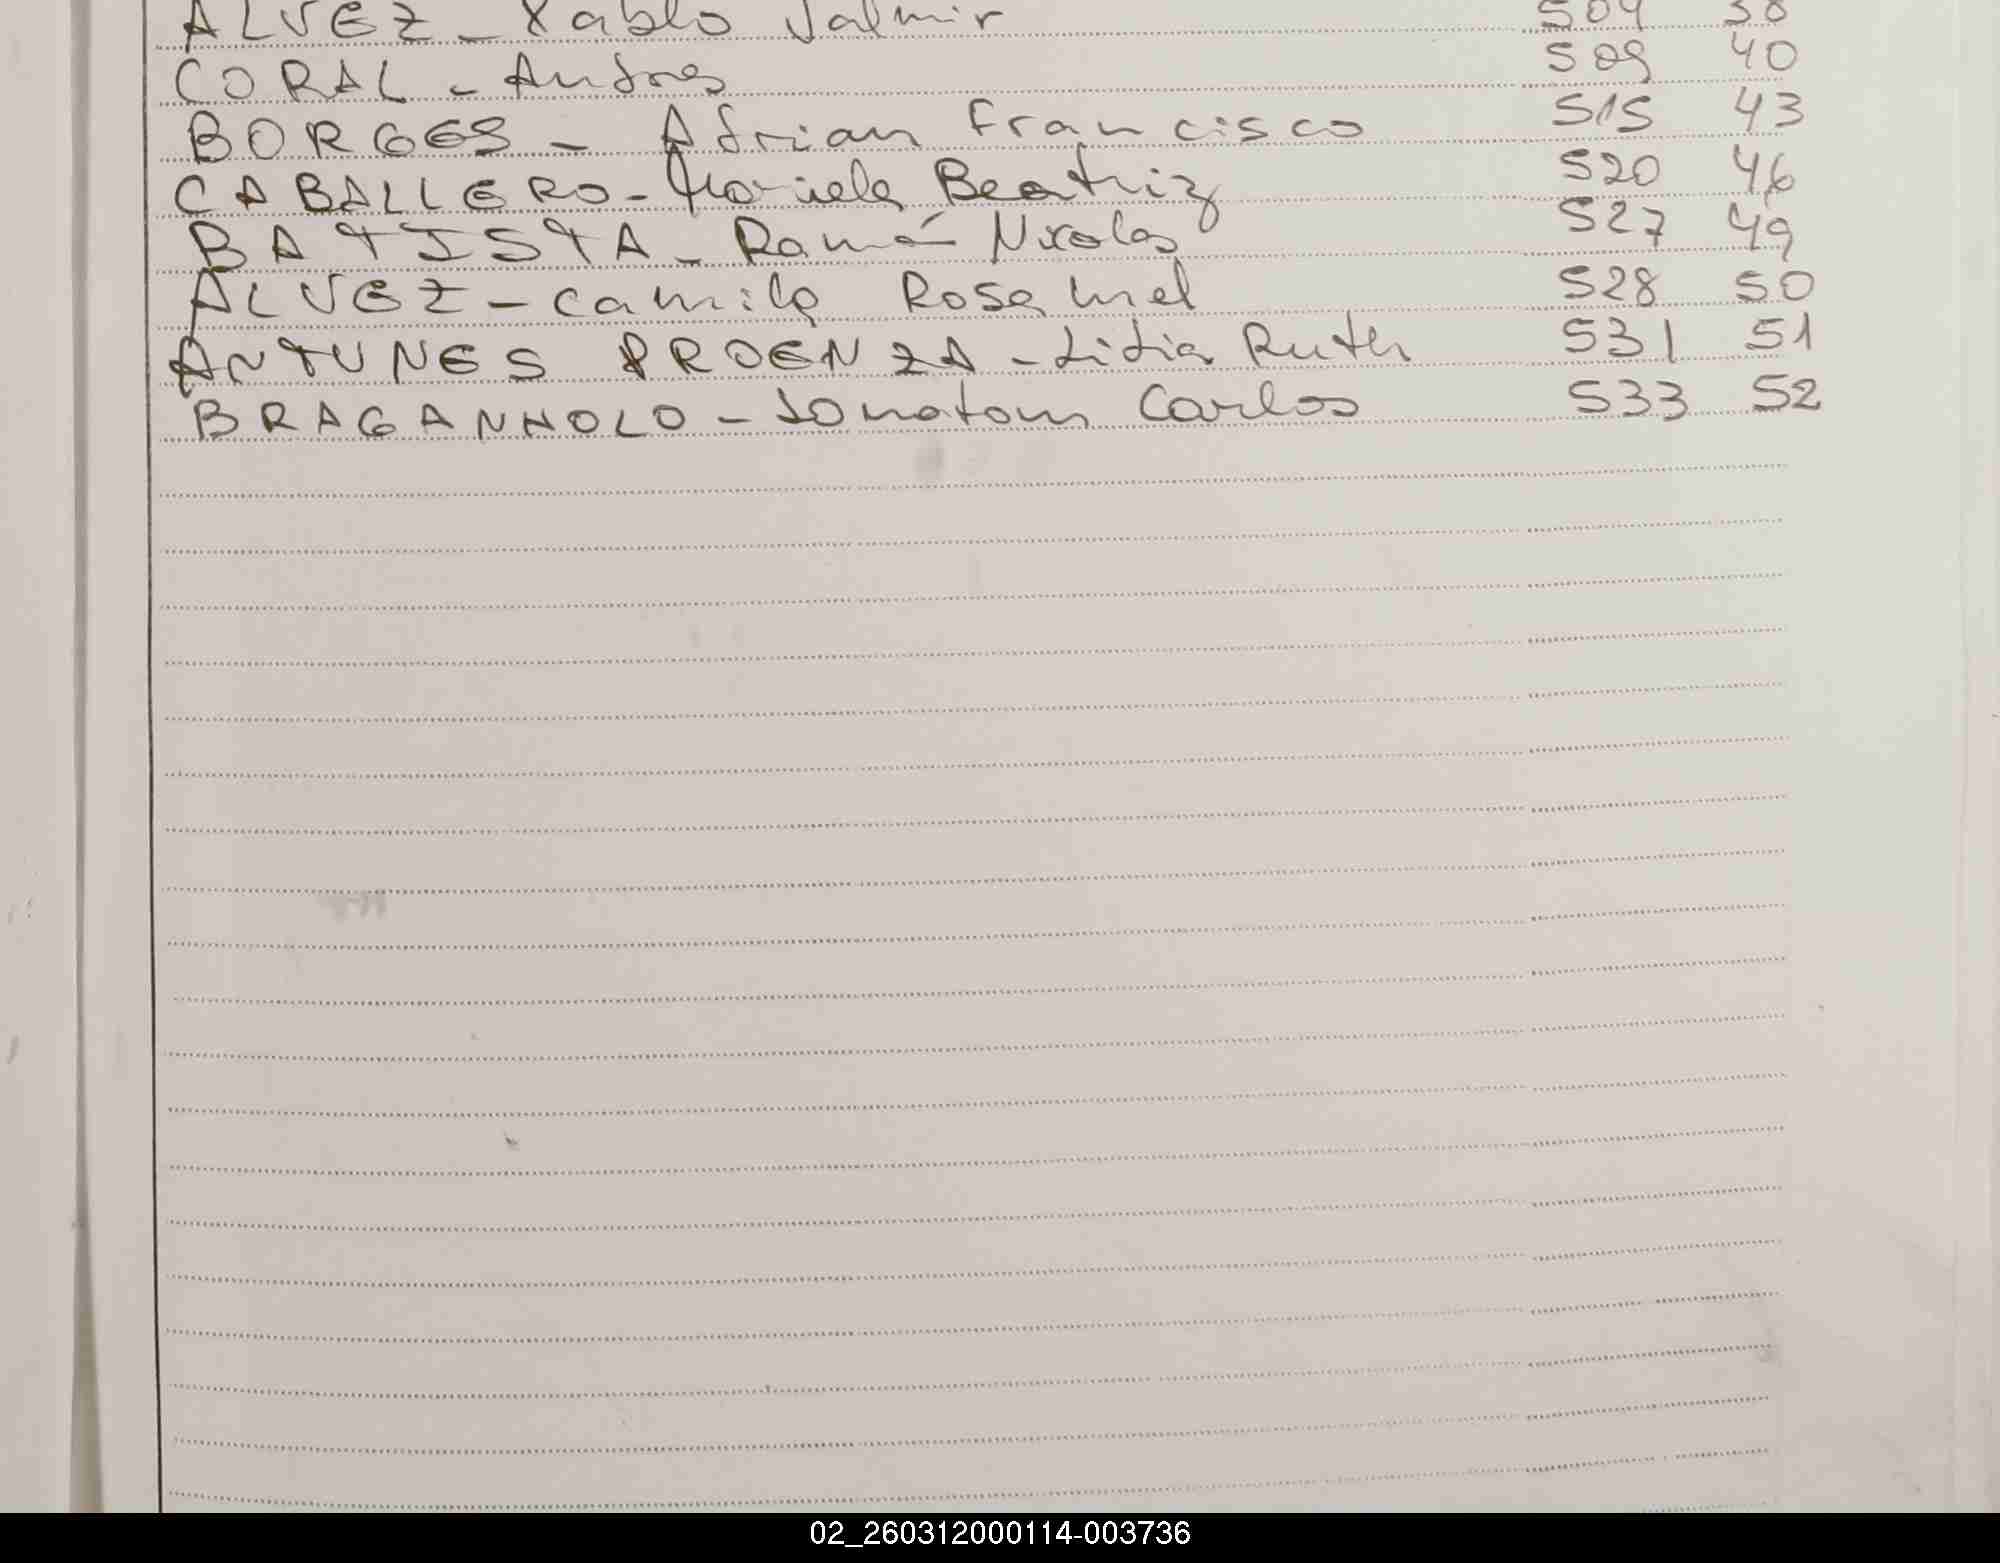 ALVEZ - Pablo Valmir 504 38
CORAL - Andres 509 40
BORGES - Adrian Francisco 515 43
CABALLERO - Mariela Beatriz 520 46
BATISTA - Ramón Nicolas 527 49
ALVEZ - Camila Rosa 528 50
ANTUNES PROENZA - Lidia Ruth 531 51
BRAGANHOLO - Jonatan Carlos 533 52
02_260312000114-003736